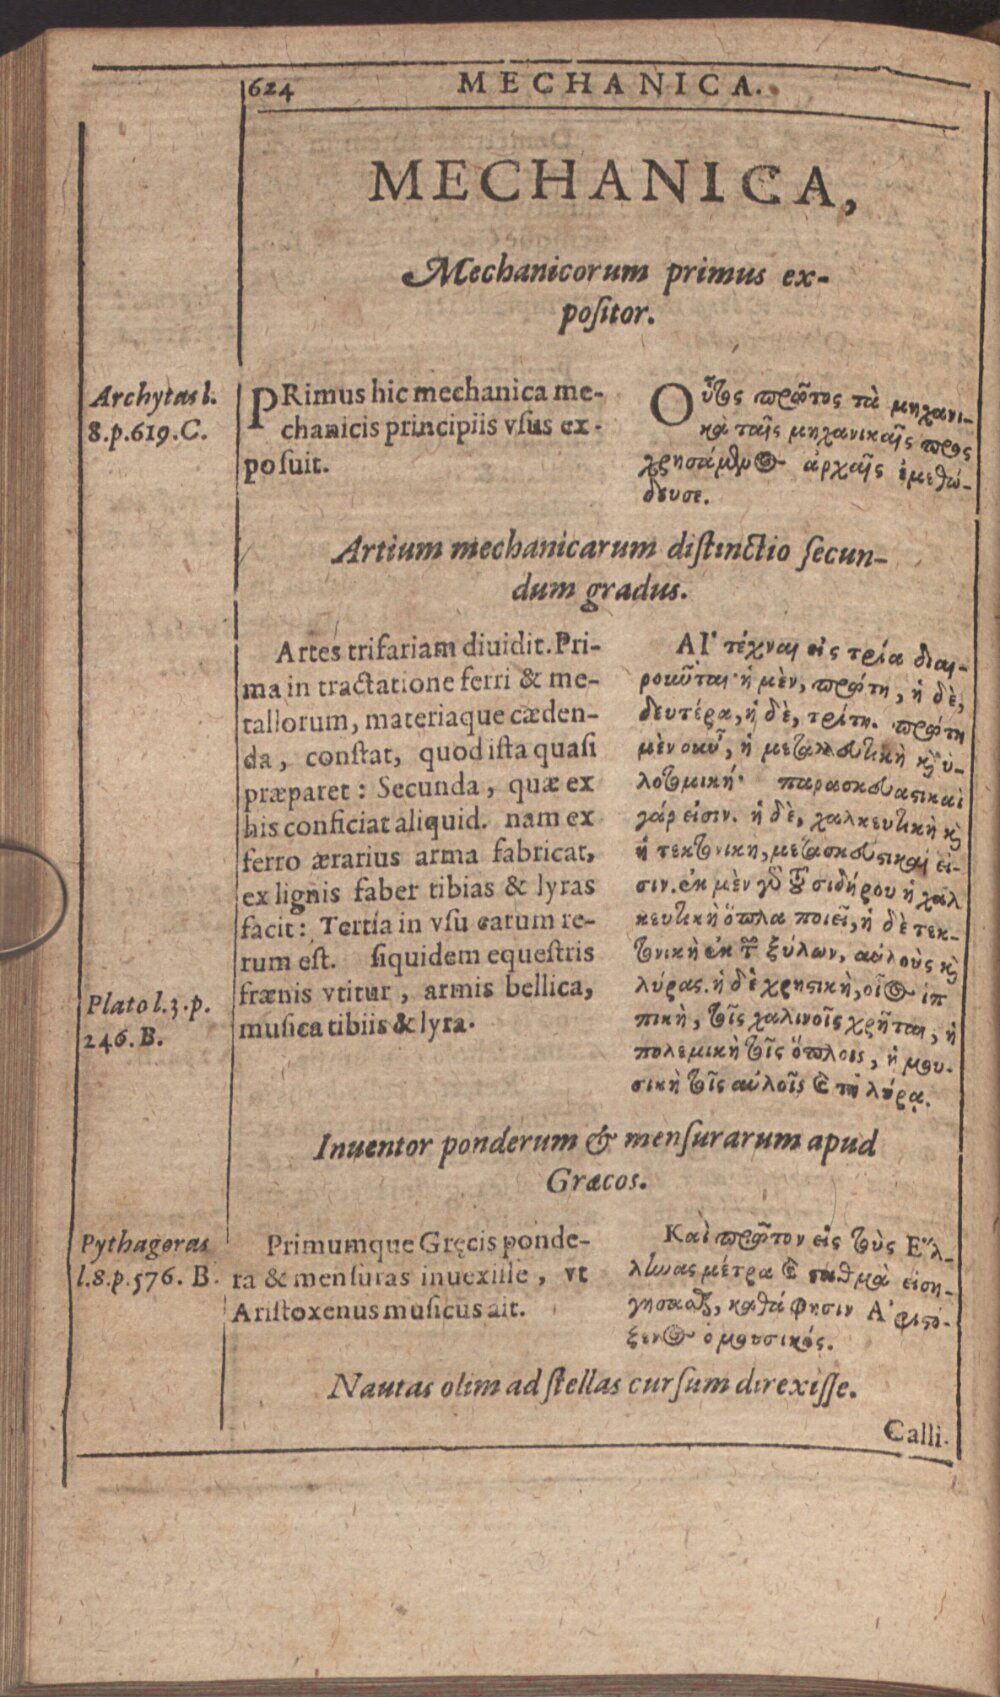 624
MECHANICA.
MECHANICA,
Mechanicorum primus ex-
poſitor.
Archytas l.
8.p.619.C.
PRimus hic mechanica me-
chanicis principiis vſus ex-
poſuit.
Οὗτος πρῶτος τὰ μηχανι-
κὰ ταῖς μηχανικαῖς προς
χρησάμενος ἀρχαῖς ἐμεθώ-
δευσε.
Artium mechanicarum diſtinctio ſecun-
dum gradus.
Artes trifariam diuidit. Pri-
ma in tractatione ferri & me-
tallorum, materiaque cæden-
da, conſtat, quod iſta quaſi
præparet: Secunda, quæ ex
his conficiat aliquid. nam ex
ferro ærarius arma fabricat,
ex lignis faber tibias & lyras
facit: Tertia in vſu earum re-
rum eſt. ſiquidem equeſtris
frænis vtitur, armis bellica,
muſica tibiis & lyra.
Plato l.3.p.
246.B.
Αἱ τέχναι εἰς τρία διαι-
ροῦνται· ἡ μὲν, πρώτη, ἡ δὲ,
δευτέρα, ἡ δὲ, τρίτη. πρώτη
μὲν οὖν, ἡ μεταλλευτικὴ καὶ ὑ-
λοτομική· παρασκευαστικαὶ
γάρ εἰσιν. ἡ δὲ, χαλκευτικὴ καὶ
ἡ τεκτονικη, μετασκευστικαί εἰ-
σιν. ἐκ μὲν γὸ τοῦ σιδήρου ἡ χαλ
κευτικὴ ὅπλα ποιεῖ, ἡ δὲ τεκ-
τονικὴ ἐκ τῶν ξύλων, αὐλοὺς καὶ
λύρας. ἡ δὲ χρηστικὴ, οἷον ἱπ
πικὴ, τοῖς χαλινοῖς χρῆται, ἡ
πολεμικὴ τοῖς ὅπλοις, ἡ μου-
σικὴ τοῖς αὐλοῖς καὶ τῇ λύρᾳ.
Inuentor ponderum & menſurarum apud
Græcos.
Pythagoras
l.8.p.576. B.
Primumque Gręcis ponde-
ra & menſuras inuexiſſe, vt
Ariſtoxenus muſicus ait.
Καὶ πρῶτον εἰς τοὺς Ἕλ-
ληνας μέτρα καὶ σταθμὰ εἰση-
γησασθαι, καθά φησιν Ἀριστό-
ξενος ὁ μουσικός.
Nautas olim ad ſtellas curſum direxiſſe.
Calli-